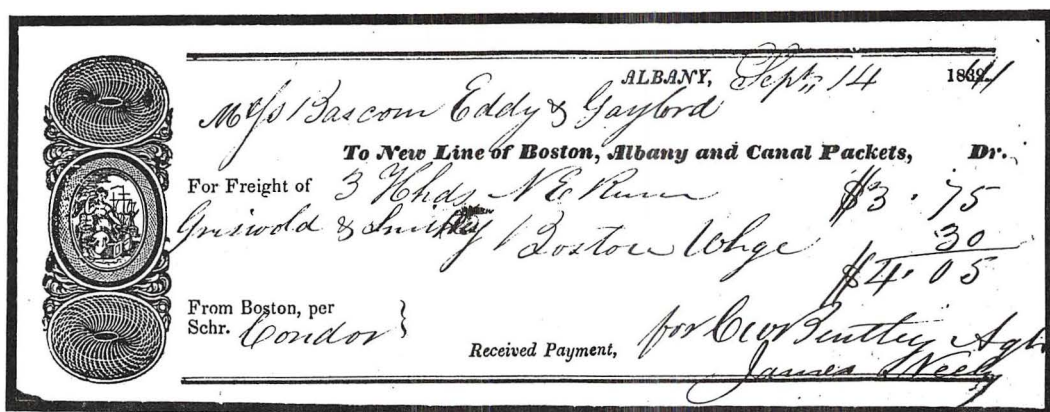 ALBANY, Sept. 14 1841
M/s Bascom Eddy & Gaylord
To New Line of Boston, Albany and Canal Packets, Dr.
For Freight of 3 Hhds N E Rum $3.75
Griswold & Smith Boston Whge 30
$4.05
From Boston, per
Schr. Condor }
Received Payment, for Geo Bentley Agt
James Neely